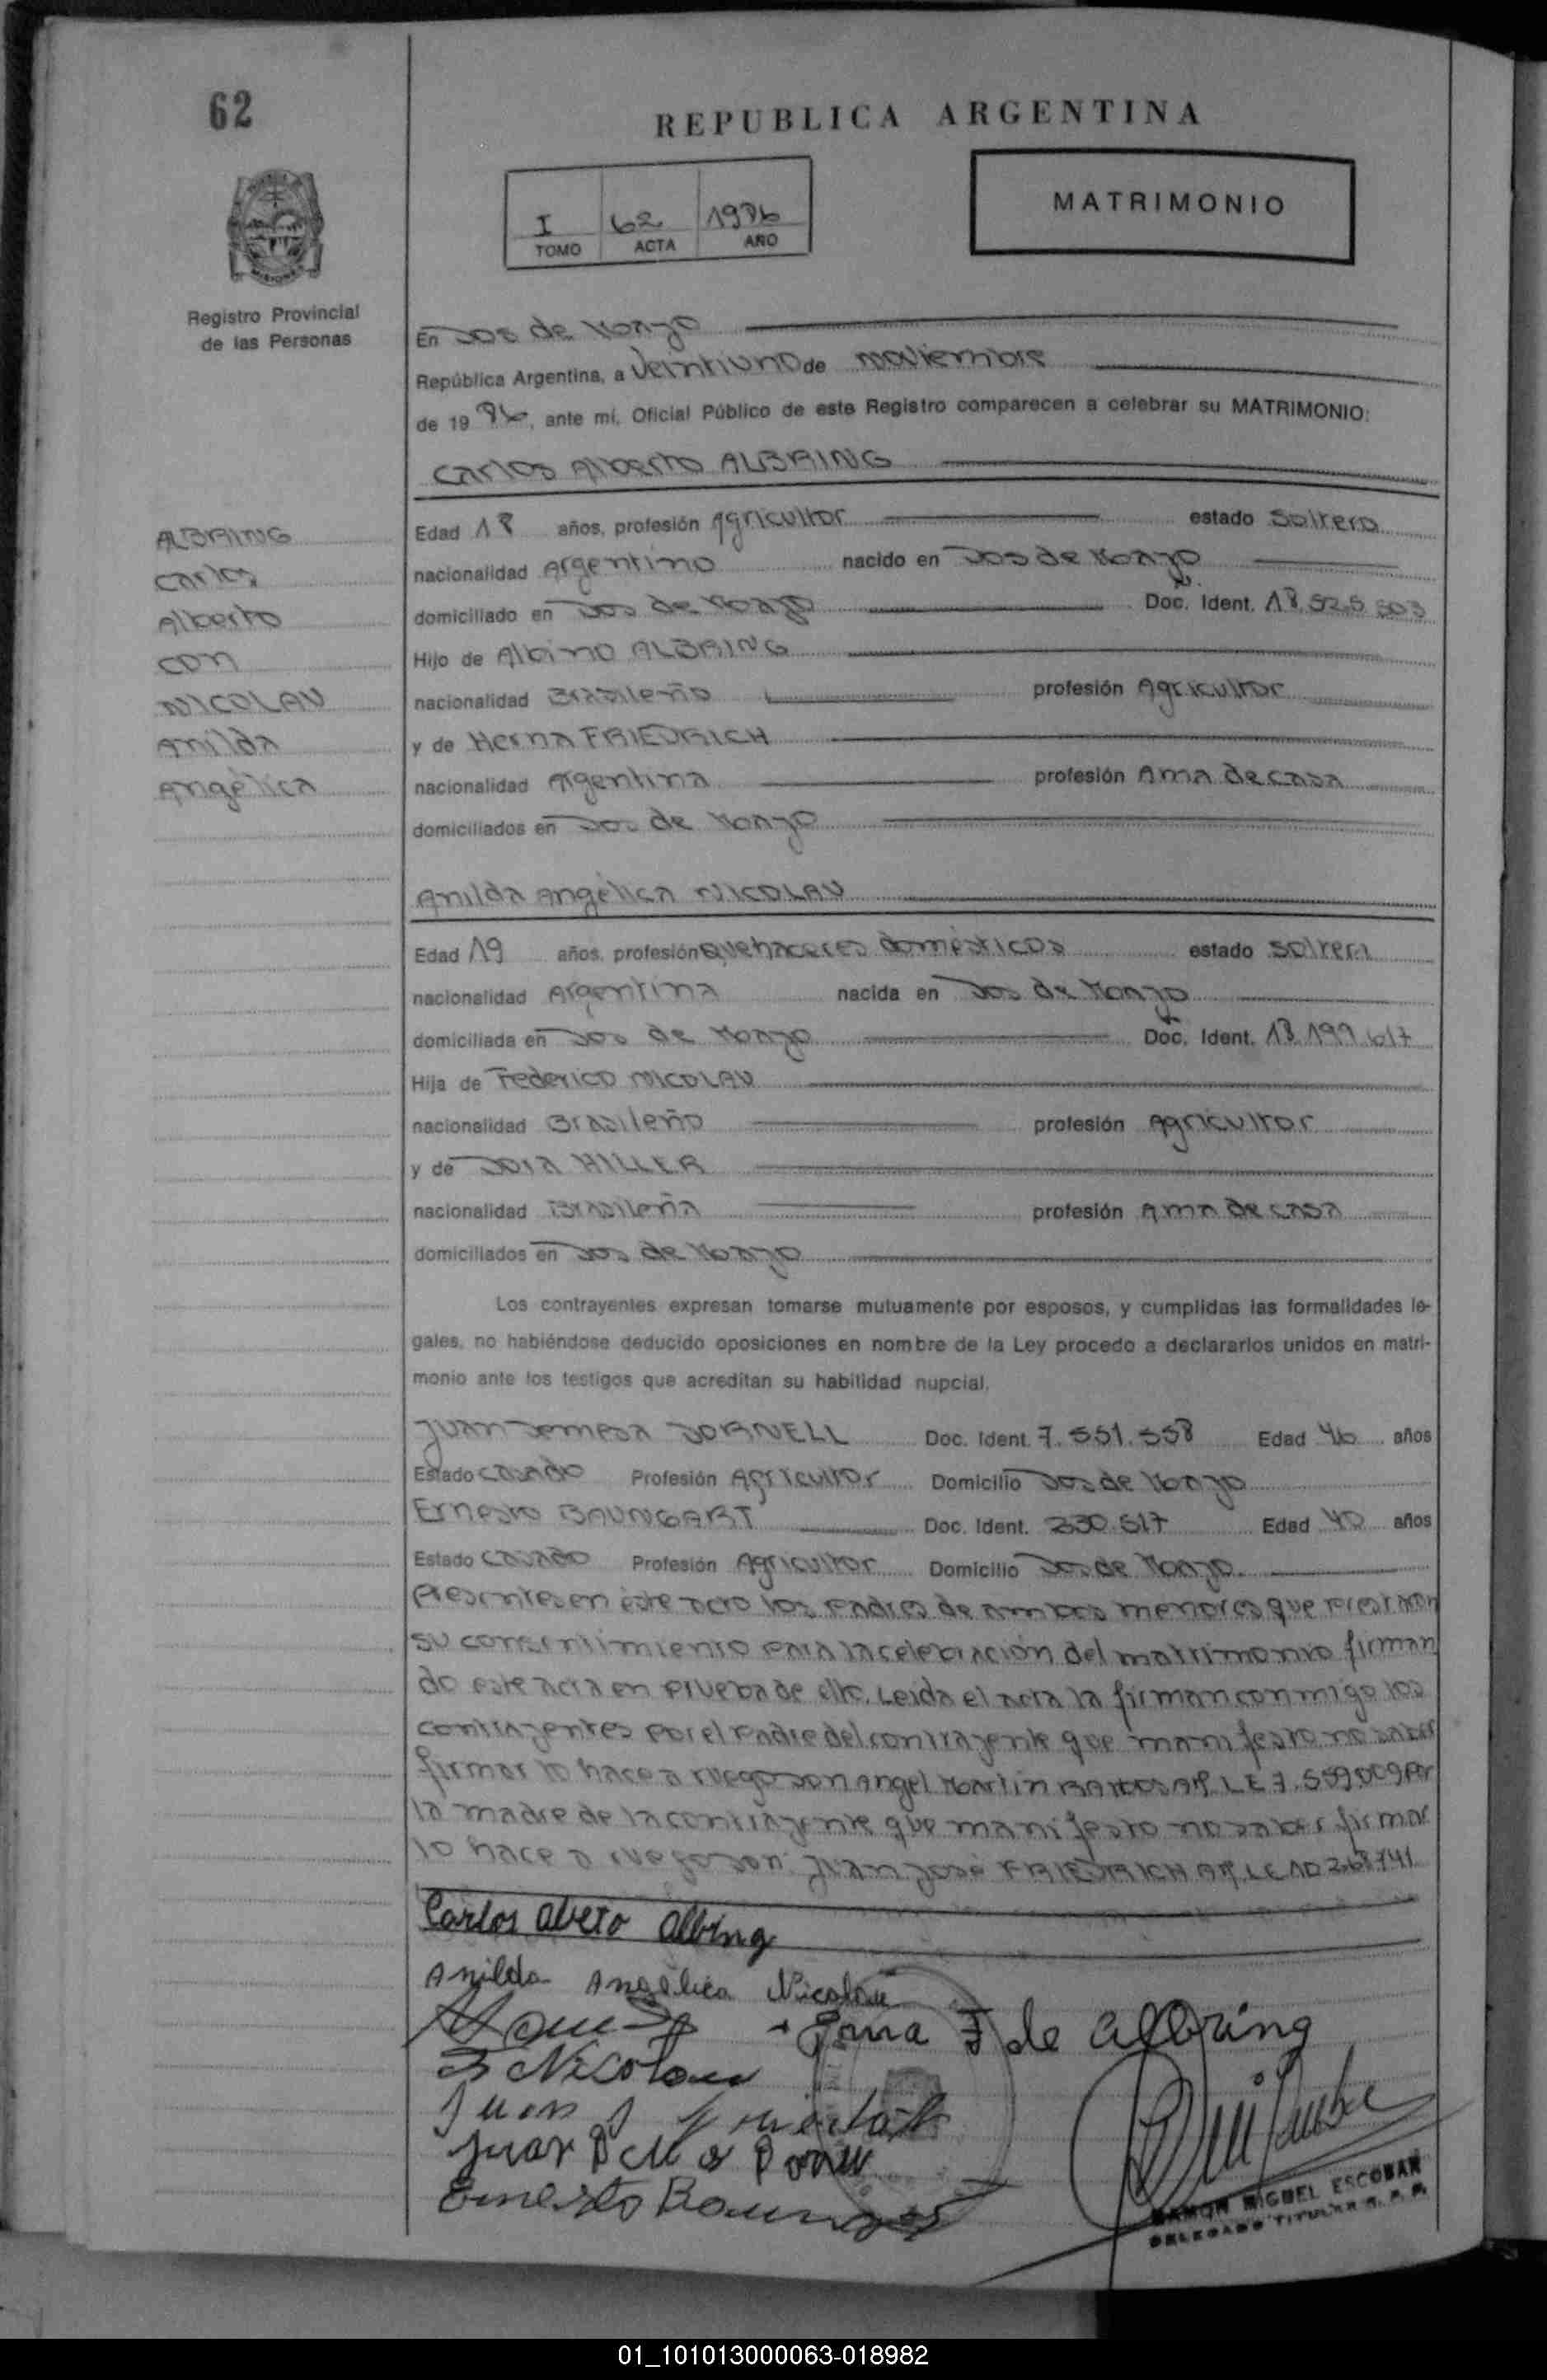 62
REPUBLICA ARGENTINA
MATRIMONIO
I 62 1986
TOMO ACTA AÑO
Registro Provincial
de las Personas
En Dos de Mayo
República Argentina, a Veintiuno de noviembre
de 19 86, ante mí, Oficial Público de este Registro comparecen a celebrar su MATRIMONIO:
Carlos Alberto ALBRING
ALBRING
Carlos
Alberto
con
NICOLAU
Anilda
Angélica
Edad 18 años, profesión Agricultor estado Soltero
nacionalidad Argentino nacido en Dos de Mayo
domiciliado en Dos de Mayo Doc. Ident. 18.525.503
Hijo de Albino ALBRING
nacionalidad Brasileño profesión Agricultor
y de Herna FRIEDRICH
nacionalidad Argentina profesión Ama de casa
domiciliados en Dos de Mayo
Anilda Angélica NICOLAU
Edad 19 años, profesión Quehaceres domésticos estado Soltera
nacionalidad Argentina nacida en Dos de Mayo
domiciliada en Dos de Mayo Doc. Ident. 18.199.617
Hija de Federico NICOLAU
nacionalidad Brasileño profesión Agricultor
y de HILLER
nacionalidad Brasileña profesión Ama de casa
domiciliados en Dos de Mayo
Los contrayentes expresan tomarse mutuamente por esposos, y cumplidas las formalidades le-
gales, no habiéndose deducido oposiciones en nombre de la Ley procedo a declararlos unidos en matri-
monio ante los testigos que acreditan su habilidad nupcial.
Juan DORNELL Doc. Ident. 7.551.558 Edad 46 años
Estado Casado Profesión Agricultor Domicilio Dos de Mayo
Ernesto BAUNGART Doc. Ident. 330.517 Edad 40 años
Estado Casado Profesión Agricultor Domicilio Dos de Mayo.
Presentes en éste acto los padres de ambos menores que prestaron
su consentimiento para la celebración del matrimonio firman
do este acta en prueba de ello. Leída el acta la firman conmigo los
contrayentes por el padre del contrayente que manifesto no saber
firmar lo hace a ruego don Angel Martin LE 7.559.009 Por
la madre de la contrayente que manifesto no saber firmar
lo hace a ruego don Juan José FRIEDRICH LE 10.268.141
Carlos Abeto Albring
Anilda Angélica Nicolau
F de Albring
Nicolau
Juan
Juan
Ernesto
RAMON MIGUEL ESCOBAR
DELEGADO TITULAR R. P. P.
01_101013000063-018982